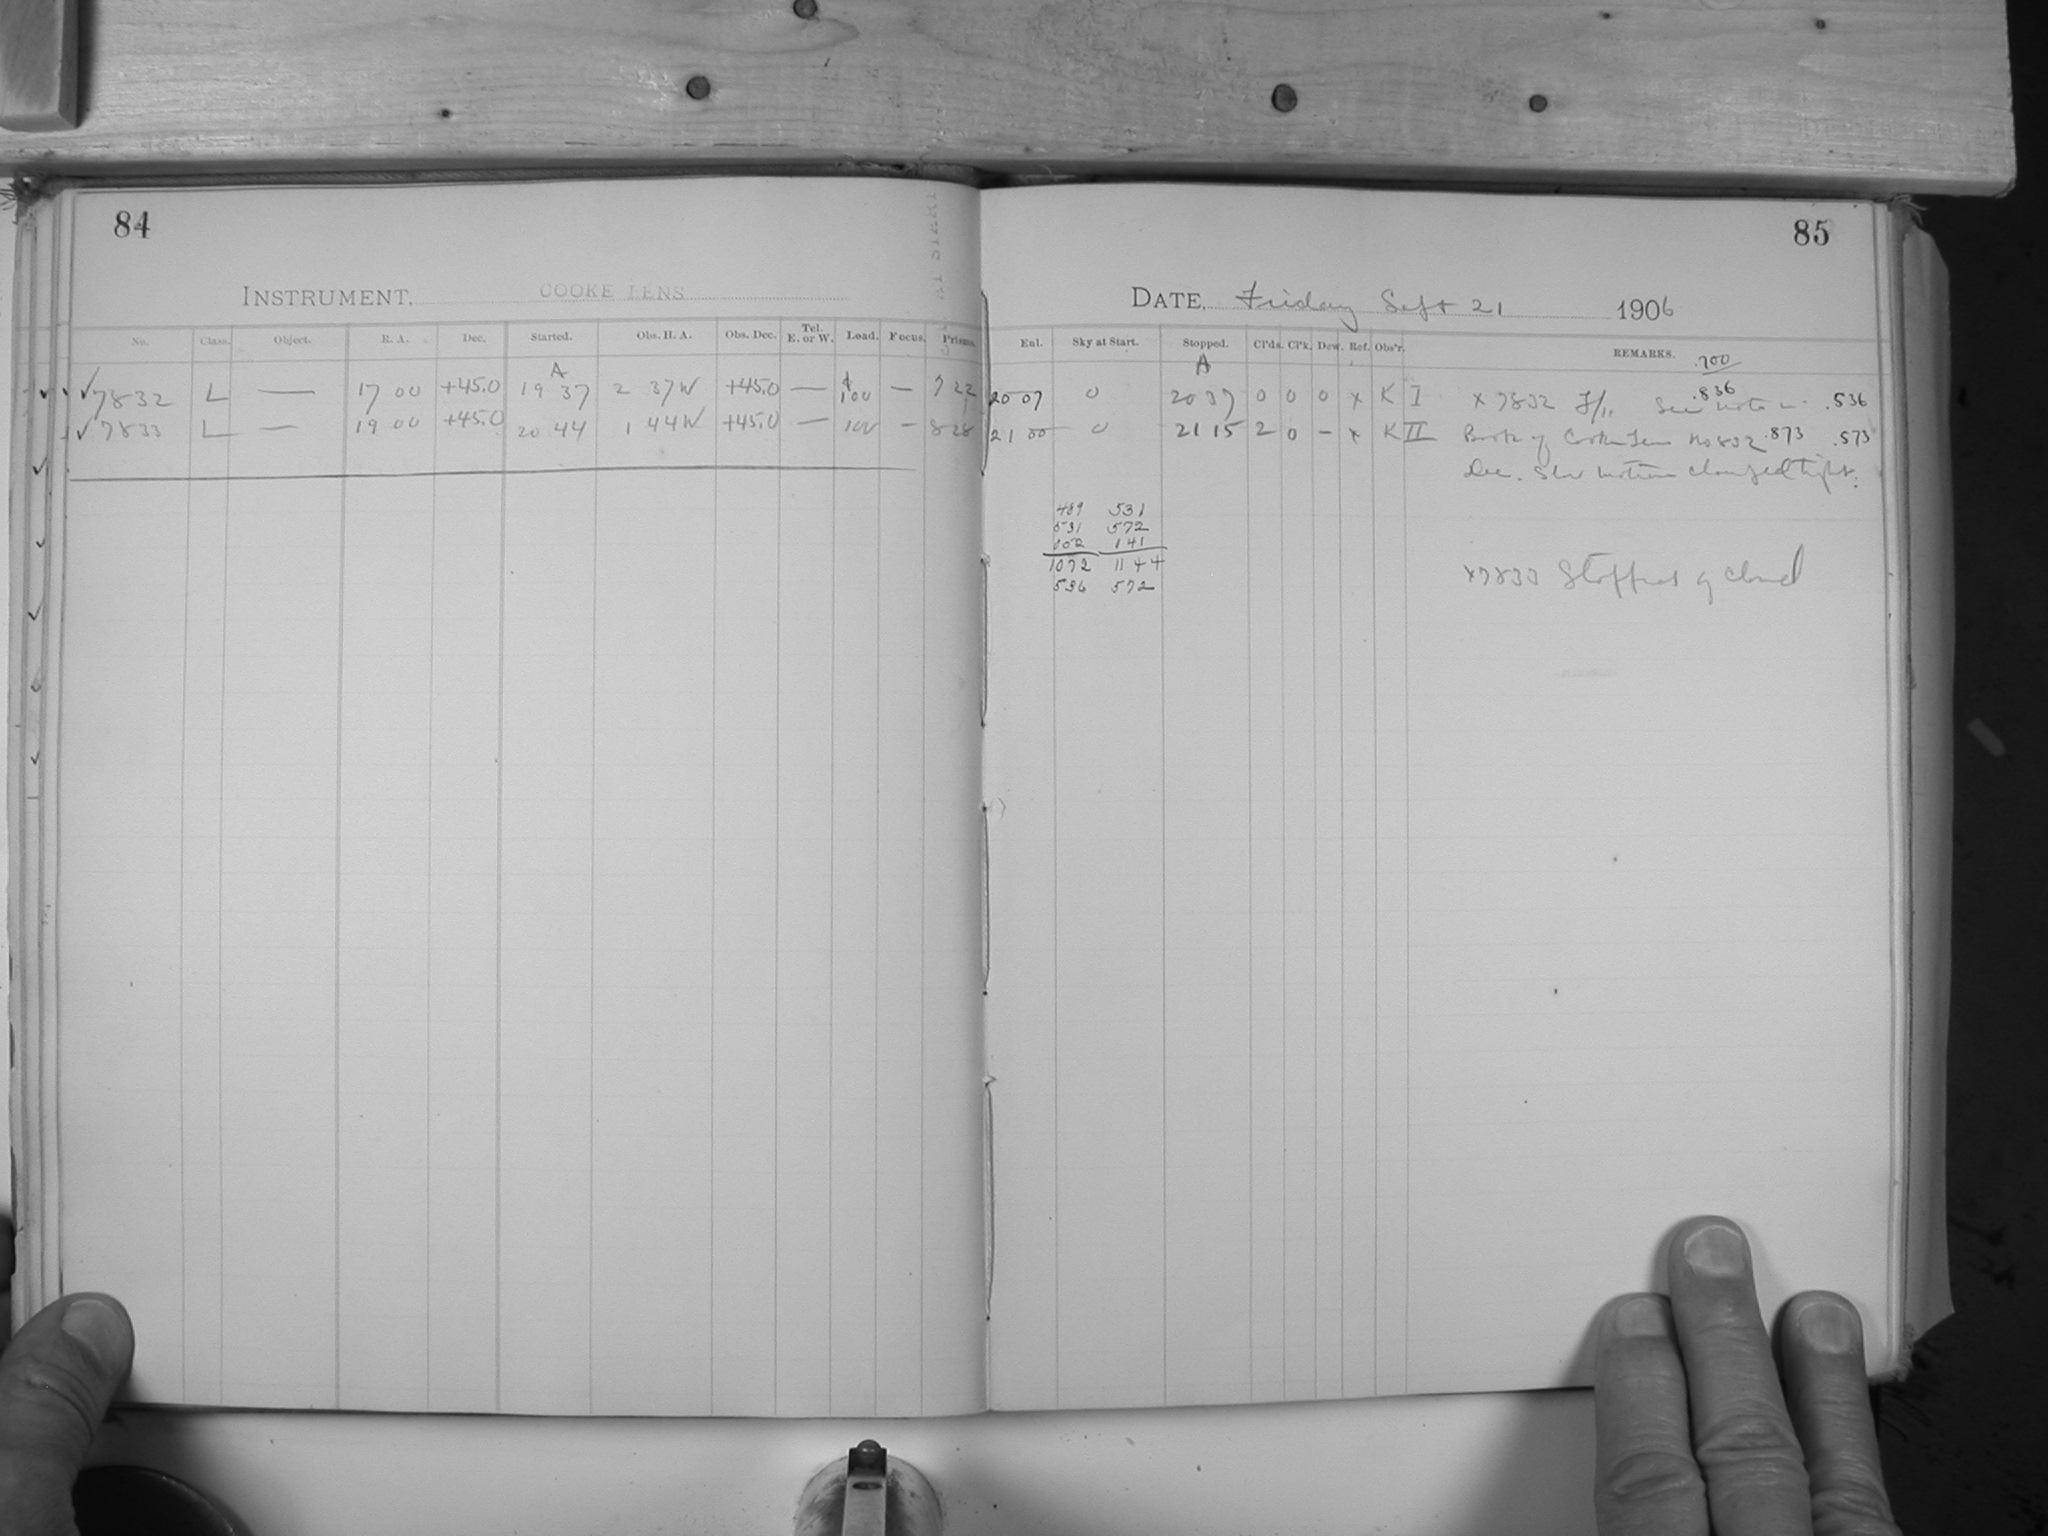 84
85
INSTRUMENT, COOKE LENS
DATE, Friday Sept 21 1906
No. Class. Object. R. A. Dec. Started. Obs. H. A. Obs. Dec. Tel. E. or W. Load. Focus. Prisms.
Enl. Sky at Start. Stopped. Cl'ds. Cl'k. Dew. Ref. Obs'r. REMARKS. .700
A A
✓7832 L — 17 00 +45.0 19 37 2 37W +45.0 — 100 — 7 22 20 07 0 20 37 0 0 0 x K I x 7832 See note in .836 .536
✓7833 L — 19 00 +45.0 20 44 1 44W +45.0 — 100 — 8 28 21 00 0 21 15 2 0 – x K II Book of Cooke Lens No 832 .873 .573
Dec. Slow motion clamped tight.
489 531
531 572
141
1072 1144
536 572
x7833 Stopped by cloud